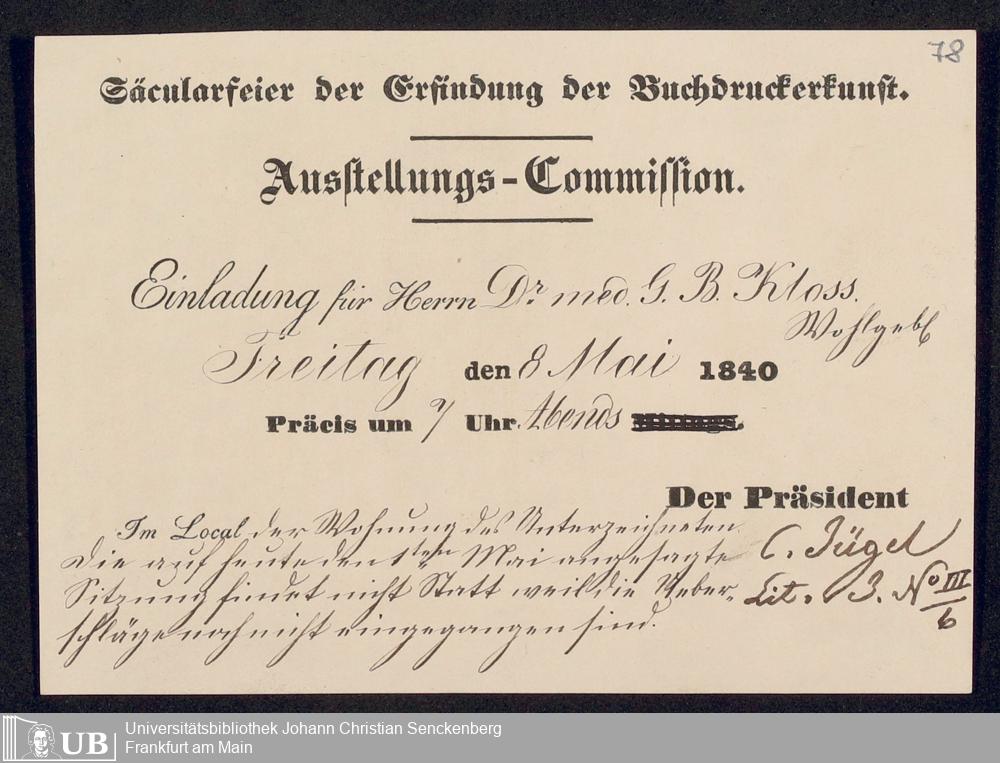 78
Säcularfeier der Erfindung der Buchdruckerkunst.
Ausstellungs-Commission.
Einladung für Herrn Dr med. G. B. Kloss.
Wohlgeb
Freitag den 8 Mai 1840
Präcis um 7 Uhr. Abends
Der Präsident
Im Local der Wohnung des Unterzeichneten.
C. Jügel
Die auf heute den 1ten Mai angesagte
Sitzung findet nicht Statt weil die Ueber-
Lit. J. No III/6
schläge noch nicht eingegangen sind.
UB Universitätsbibliothek Johann Christian Senckenberg
Frankfurt am Main